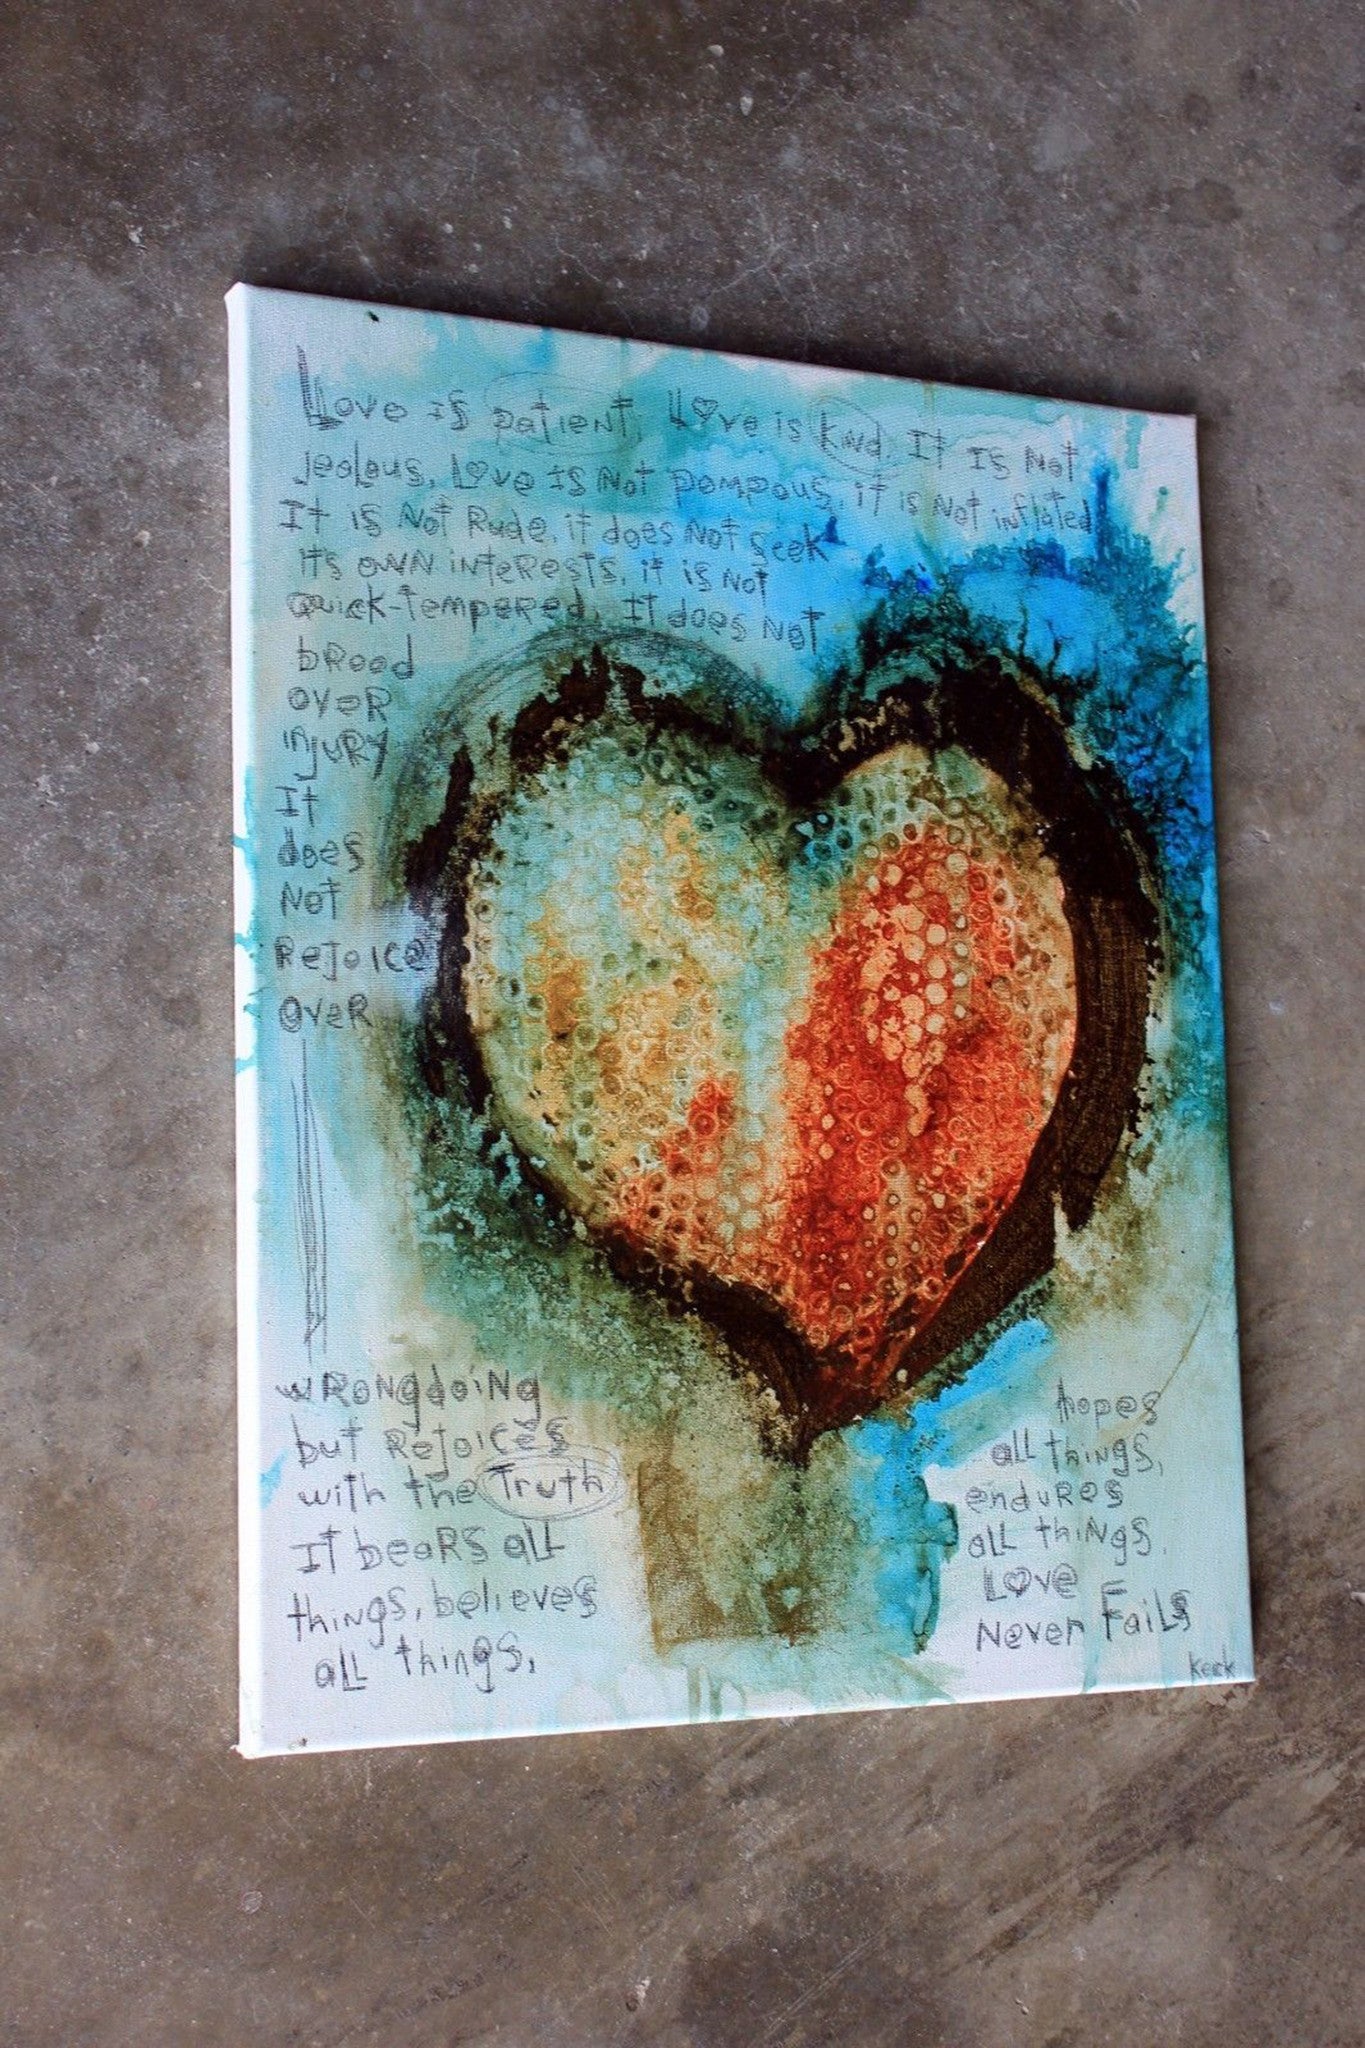 Love is patient, Love is kind. It is Not
jealous, Love is Not pompous, it is Not inflated
It is Not Rude, it does Not seek
its own interests, it is Not
quick-tempered, It does Not
brood
over
injury
It
does
Not
Rejoice
over
wrongdoing
but Rejoices
with the Truth
It bears all
things, believes
all things,
hopes
all things,
endures
all things.
Love
Never Fails
Keck